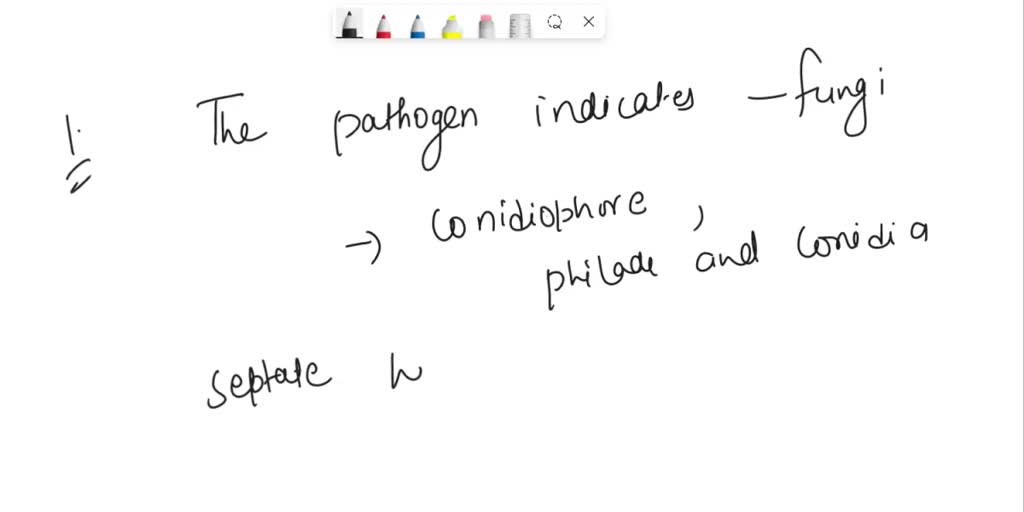 1. The pathogen indicates - fungi
→ conidiophore,
philade and conidia
septate h